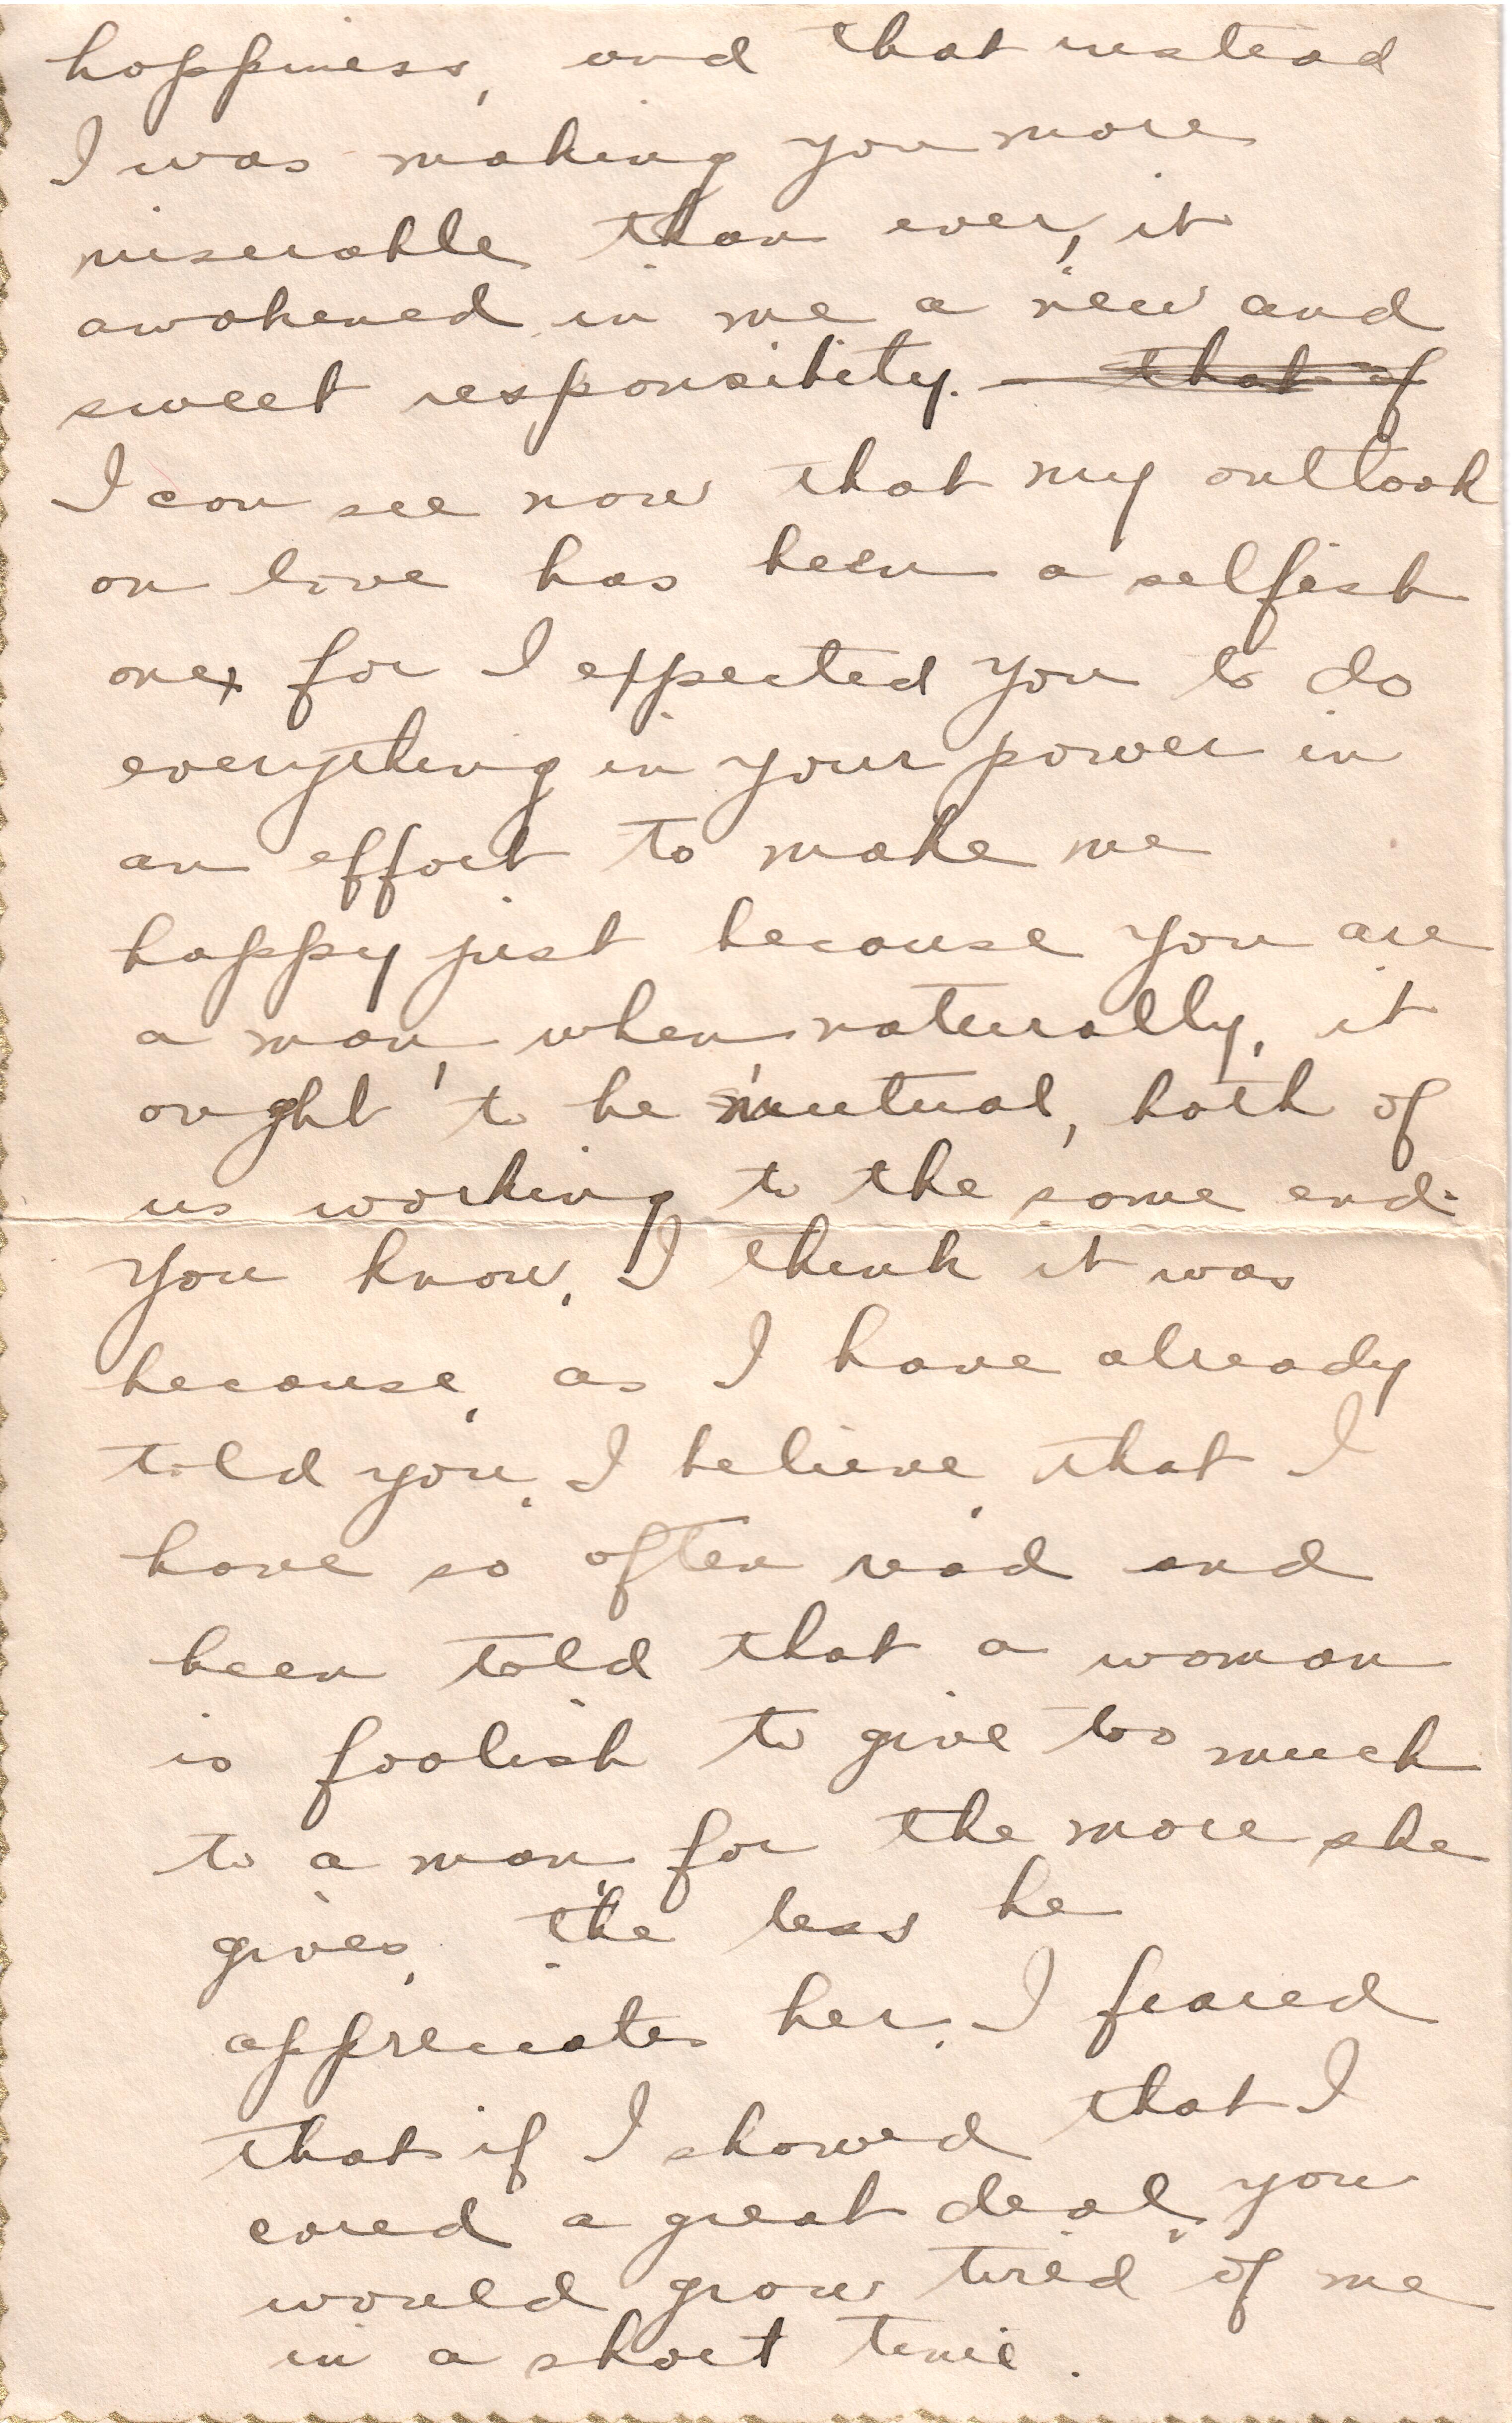 happiness, and that instead
I was making you more
miserable than ever, it
awakened in me a new and
sweet responsibility. — that of
I can see now that my outlook
on love has been a selfish
one, for I expected you to do
everything in your power in
an effort to make me
happy just because you are
a man, when naturally, it
ought to be mutual, both of
us working to the same end.
You know, I think it was
because, as I have already
told you, I believe, that I
have so often read and
been told that a woman
is foolish to give too much
to a man, for the more she
gives, the less he
appreciates her. I feared
that if I showed that I
cared a great deal, you
would grow tired of me
in a short time.